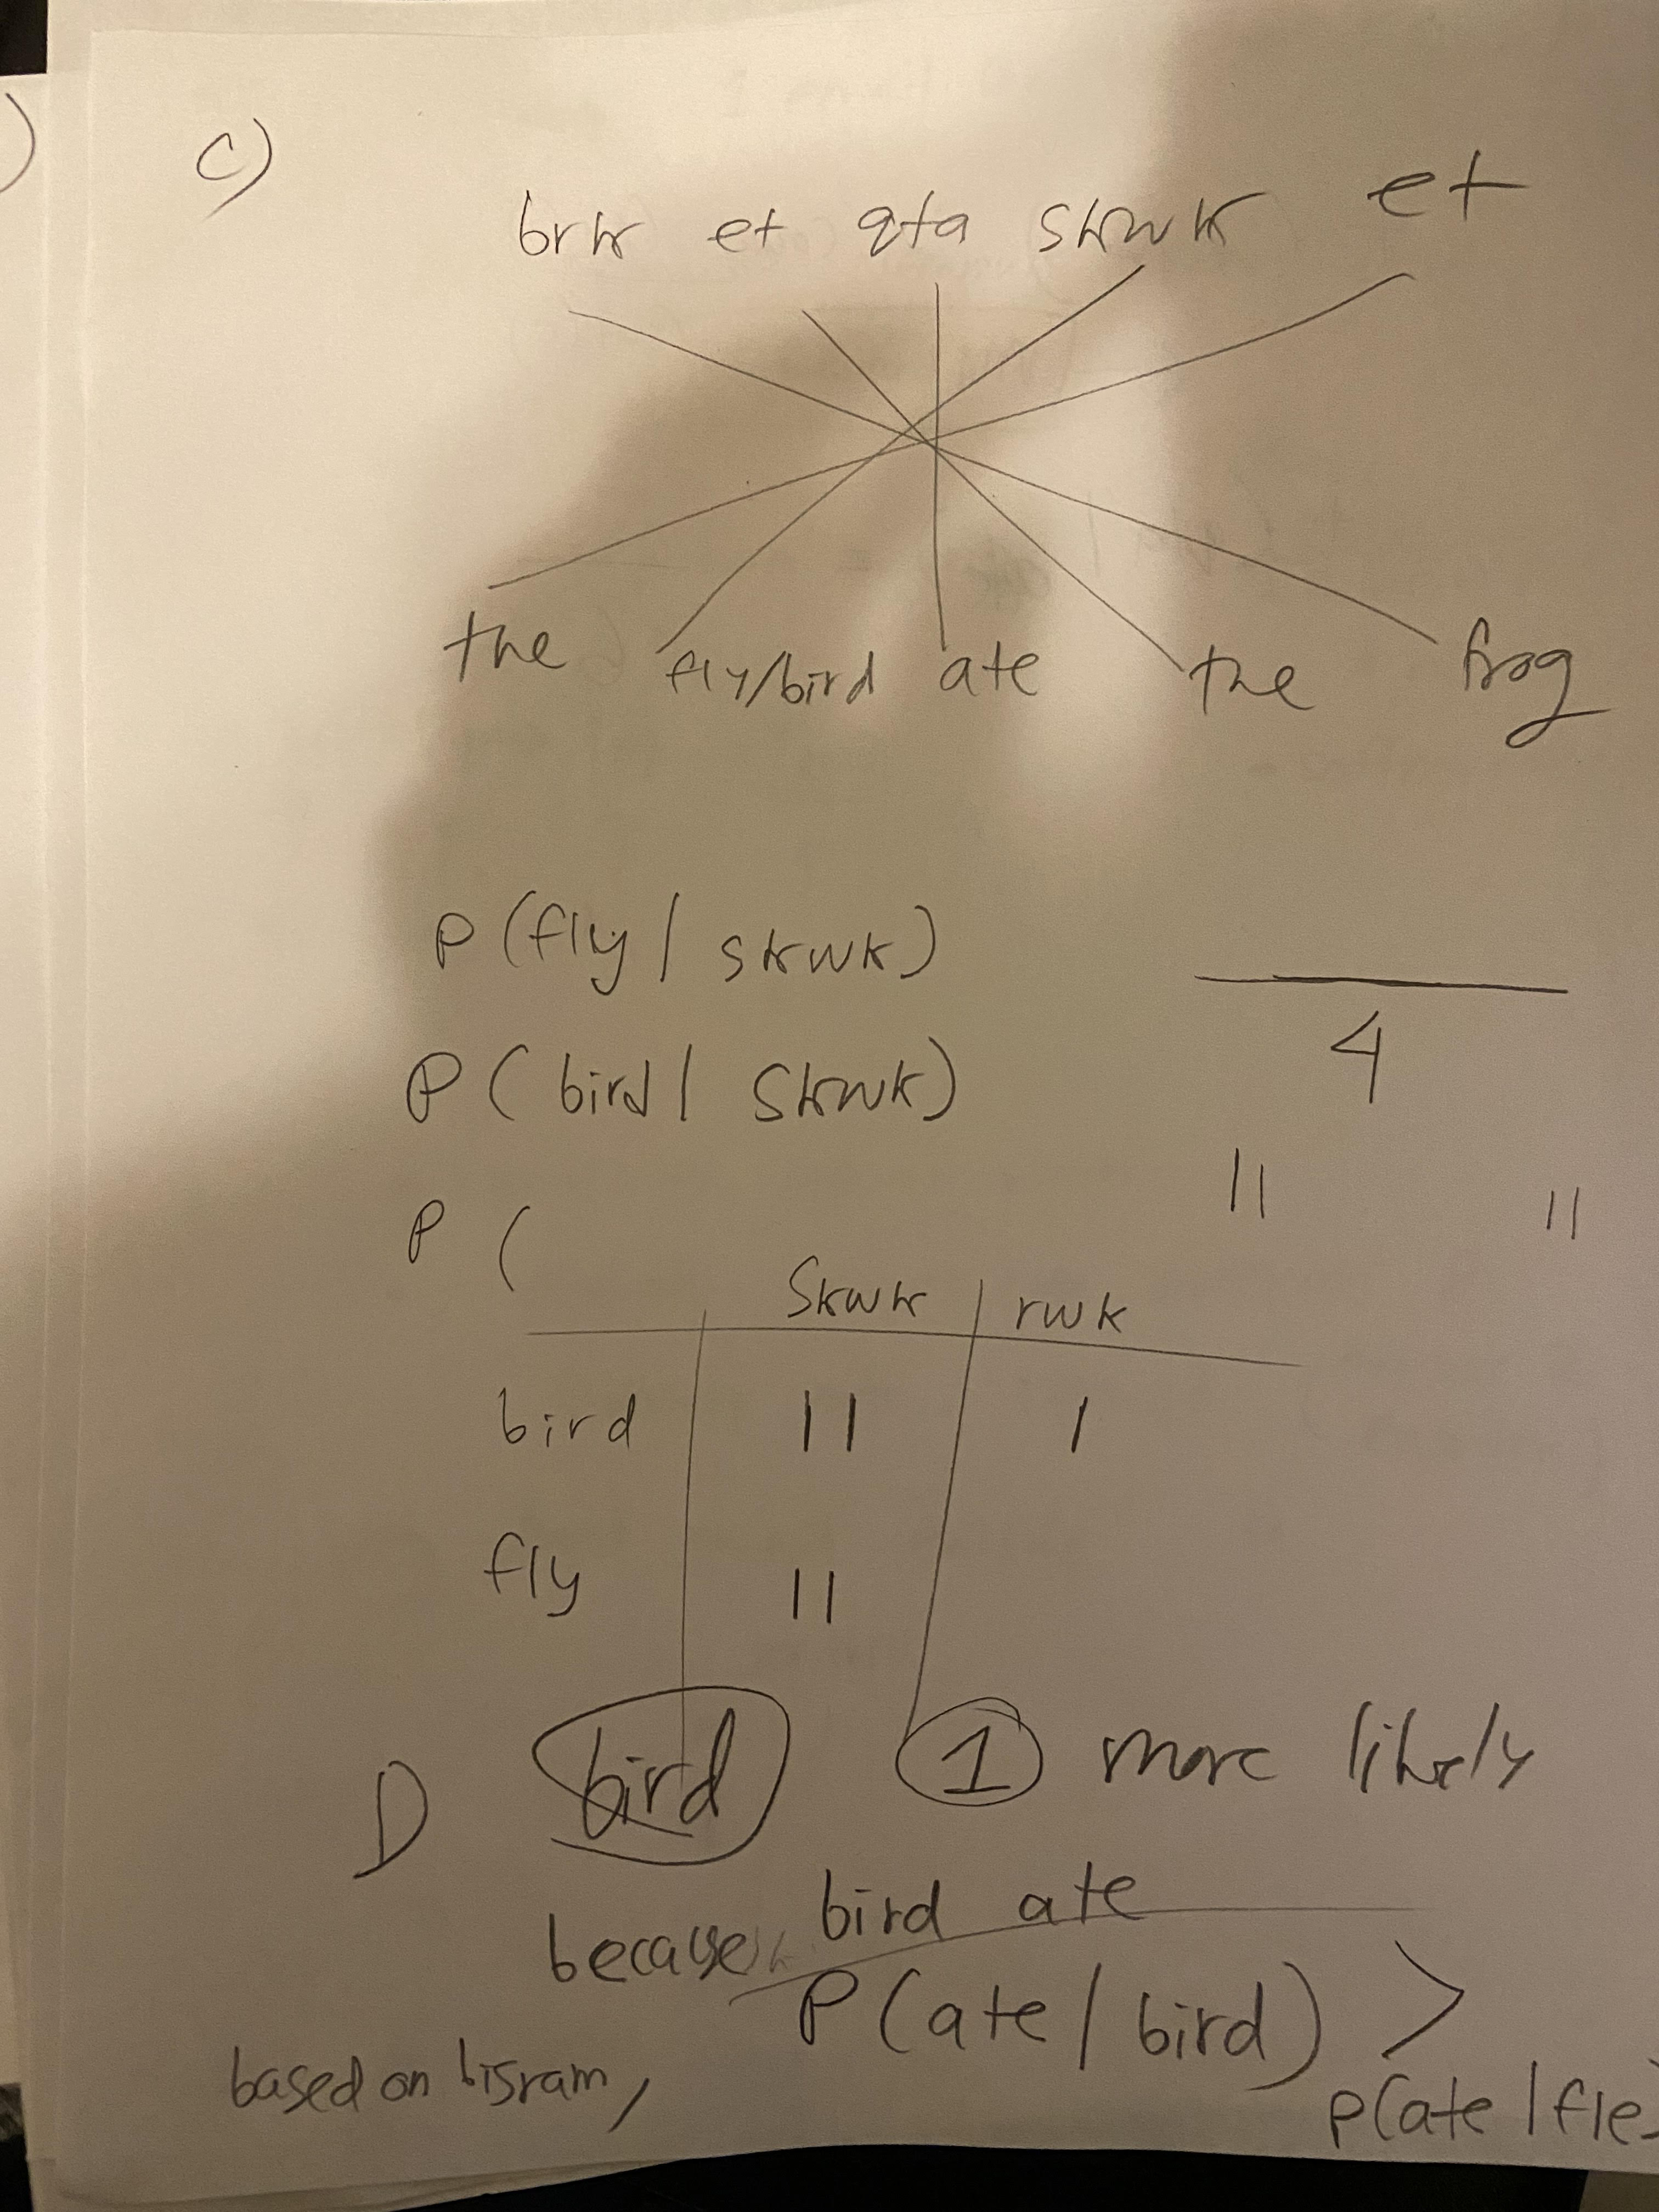 )
c)
brk et qta skwk et
the fly/bird ate the frog
P (fly | skwk)
4
P ( bird | skwk)
|| ||
P (
Skwk rwk
bird || |
fly ||
D bird 1 more likely
because bird ate
P(ate | bird) >
based on bigram, P(ate | fle)